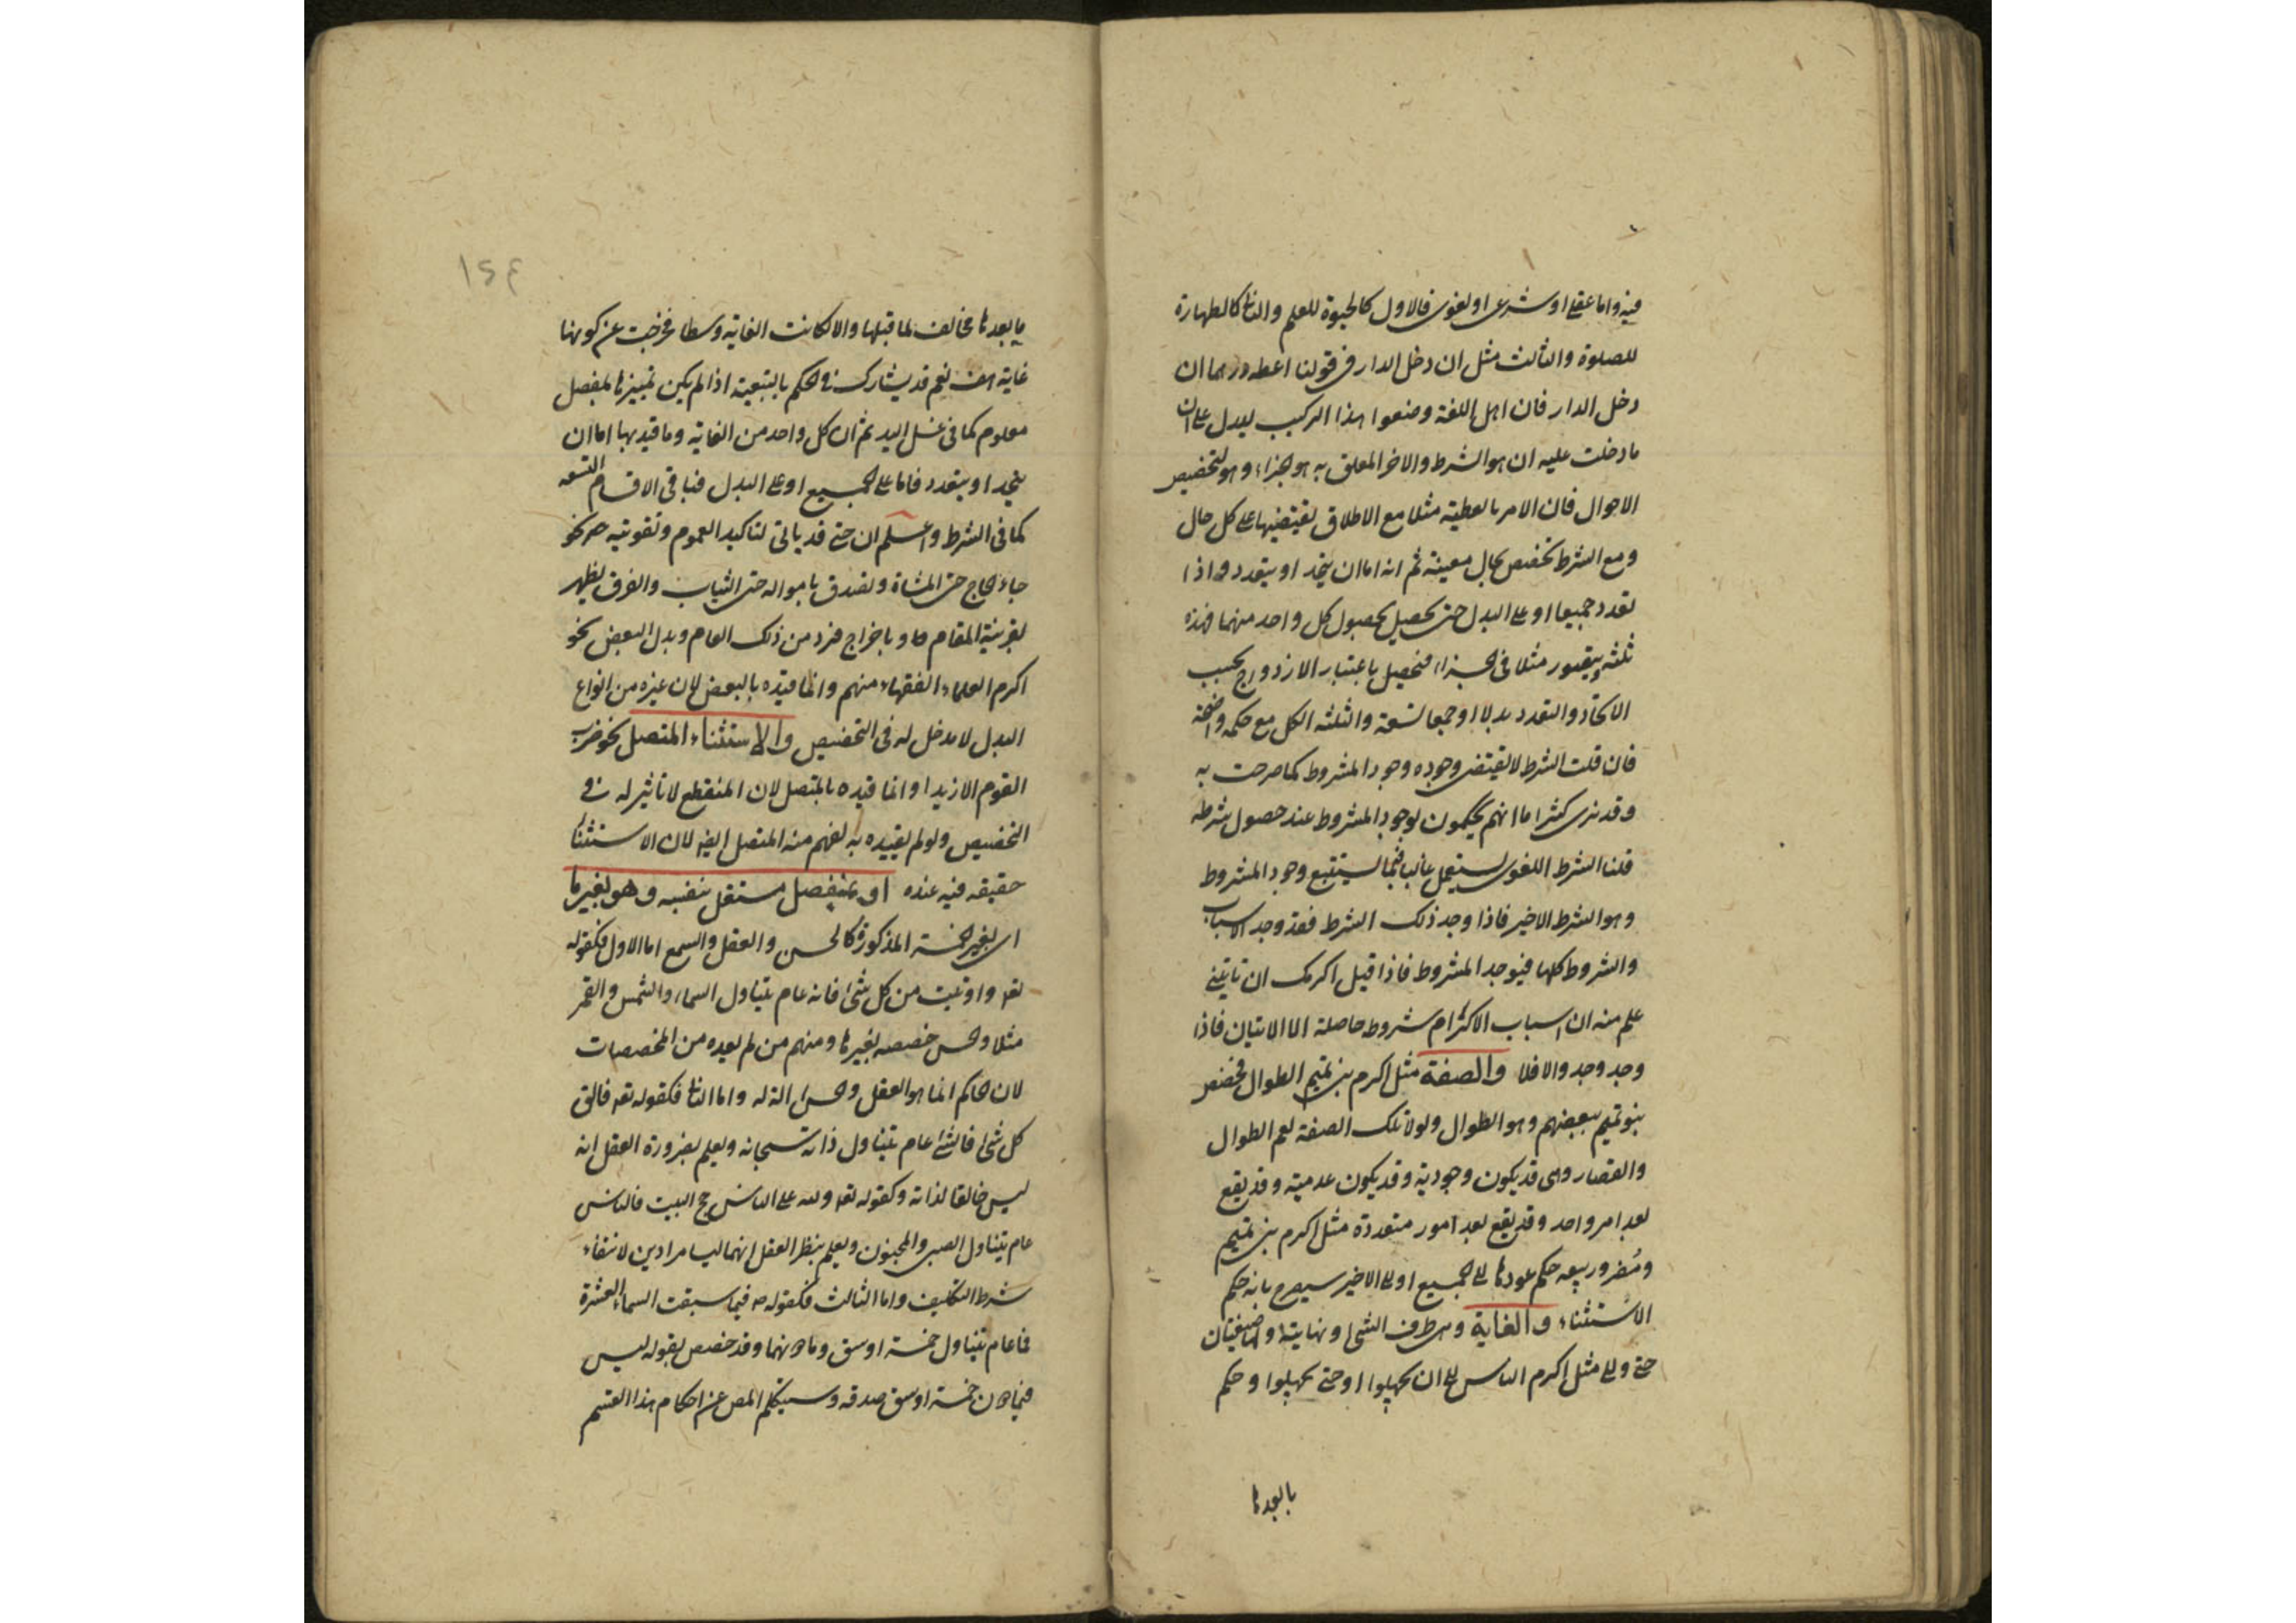 فيه واما عقلي او شرعي او لغوي فالاول كالحيوة للعلم والثانی كالطهارة
للصلوة والثالث مثل ان دخل الدار في قولنا اعطه درهما ان
دخل الدار فان اهل اللغة وضعوا هذا التركيب ليدل على ان
ما دخلت عليه ان هو الشرط والاخر المعلق به هو الجزاء وهو لتخصيص
الاحوال فان الامر بالعطية مثلا مع الاطلاق يقتضيها على كل حال
ومع الشرط تخصص بحال معينة ثم انه اما ان يتحد او يتعدد واذا
تعدد جميعا او على البدل حتى يحصل بحصول كل واحد منهما فهذه
ثلثة ويتصور مثلها في الجزاء فتحصل باعتبار الازدواج بحسب
الاتحاد والتعدد بدلا او جمعا تسعة والثلثة الكل مع حكمه واضحة
فان قلت الشرط لا يقتضى وجوده وجود المشروط كما صرحت به
وقد نرى كثيرا ما انهم يحكمون بوجود المشروط عند حصول شرطه
قلنا الشرط اللغوى يستعمل غالبا فيما يستتبع وجود المشروط
وهو الشرط الاخير فاذا وجد ذلك الشرط فقد وجد الاسباب
والشروط كلها فيوجد المشروط فاذا قيل اكرمك ان تاتيني
علم منه ان اسباب الاكرام شروط حاصلة الا الاتيان فاذا
وجد وجد والا فلا والصفة مثل اكرم بنى تميم الطوال فخصص
بنو تميم ببعضهم وهو الطوال ولولا تلك الصفة لعم الطوال
والقصار وهى قد يكون وجودية وقد يكون عدمية وقد يقع
بعد امر واحد وقد يقع بعد امور متعددة مثل اكرم بنى تميم
ومضر وربيعه حكم عودها الى الجميع او الى الاخير سيصرح بانه حكم
الاستثناء والغاية وهى طرف الشئ ونهايته
حتى والى مثل اكرم الناس الى ان يجهلوا او حتى يجهلوا وحكم
ما بعدها
١٥٤
ما بعدها مخالف لما قبلها والا لكانت الغاية وسطا فخرجت عن كونها
غاية هف نعم قد يشارك في الحكم بالتبعية اذا لم يكن تمييزها بمفصل
معلوم كما في غسل اليد ثم ان كل واحد من الغاية وما قيد بها اما ان
يتحد او يتعدد فاما على الجميع او على البدل فيأتي الاقسام التسعه
كما في الشرط واعلم ان حتى قد ياتي لتاكيد العموم وتقويته نحو
جاء الحاج حتى المشاة وتصدق بامواله حتى الثياب والفرق يظهر
بقرينة المقام او باخراج فرد من ذلك العام وبدل البعض نحو
اكرم العلماء الفقهاء منهم وانما قيده بالبعض لان غيره من انواع
البدل لا مدخل له في التخصيص والاستثناء المتصل نحو ضرب
القوم الا زيدا وانما قيده بالمتصل لان المنقطع لا تاثير له في
التخصيص ولو لم يقيده به لفهم منه المتصل ايضا لان الاستثناء
حقيقه فيه عنده او بمنفصل مستقل بنفسه وهو بغيرها
اى بغير الخمسة المذكورة كالحس والعقل والسمع اما الاول فكقوله
تعه واوتيت من كل شئ فانه عام يتناول السماء والشمس والقمر
مثلا والحس خصصه بغيرها ومنهم من لم يعده من المخصصات
لان الحاكم انما هو العقل والحس الة له واما الثانی فكقوله تعه خالق
كل شئ فالشئ عام يتناول ذاته سبحانه ويعلم بضرورة العقل انه
ليس خالقا لذاته وكقوله تعه ولله على الناس حج البيت فالناس
عام يتناول الصبى والمجنون ويعلم بنظر العقل انهما ليسا مرادين لانتفاء
شرط التكليف واما الثالث فكقوله ص فيما سقت السماء العشرة
فما عام يتناول خمسة اوسق وما دونها وقد خصص بقوله ليس
فيما دون خمسة اوسق صدقه وسيتكلم المص عن احكام هذا القسم